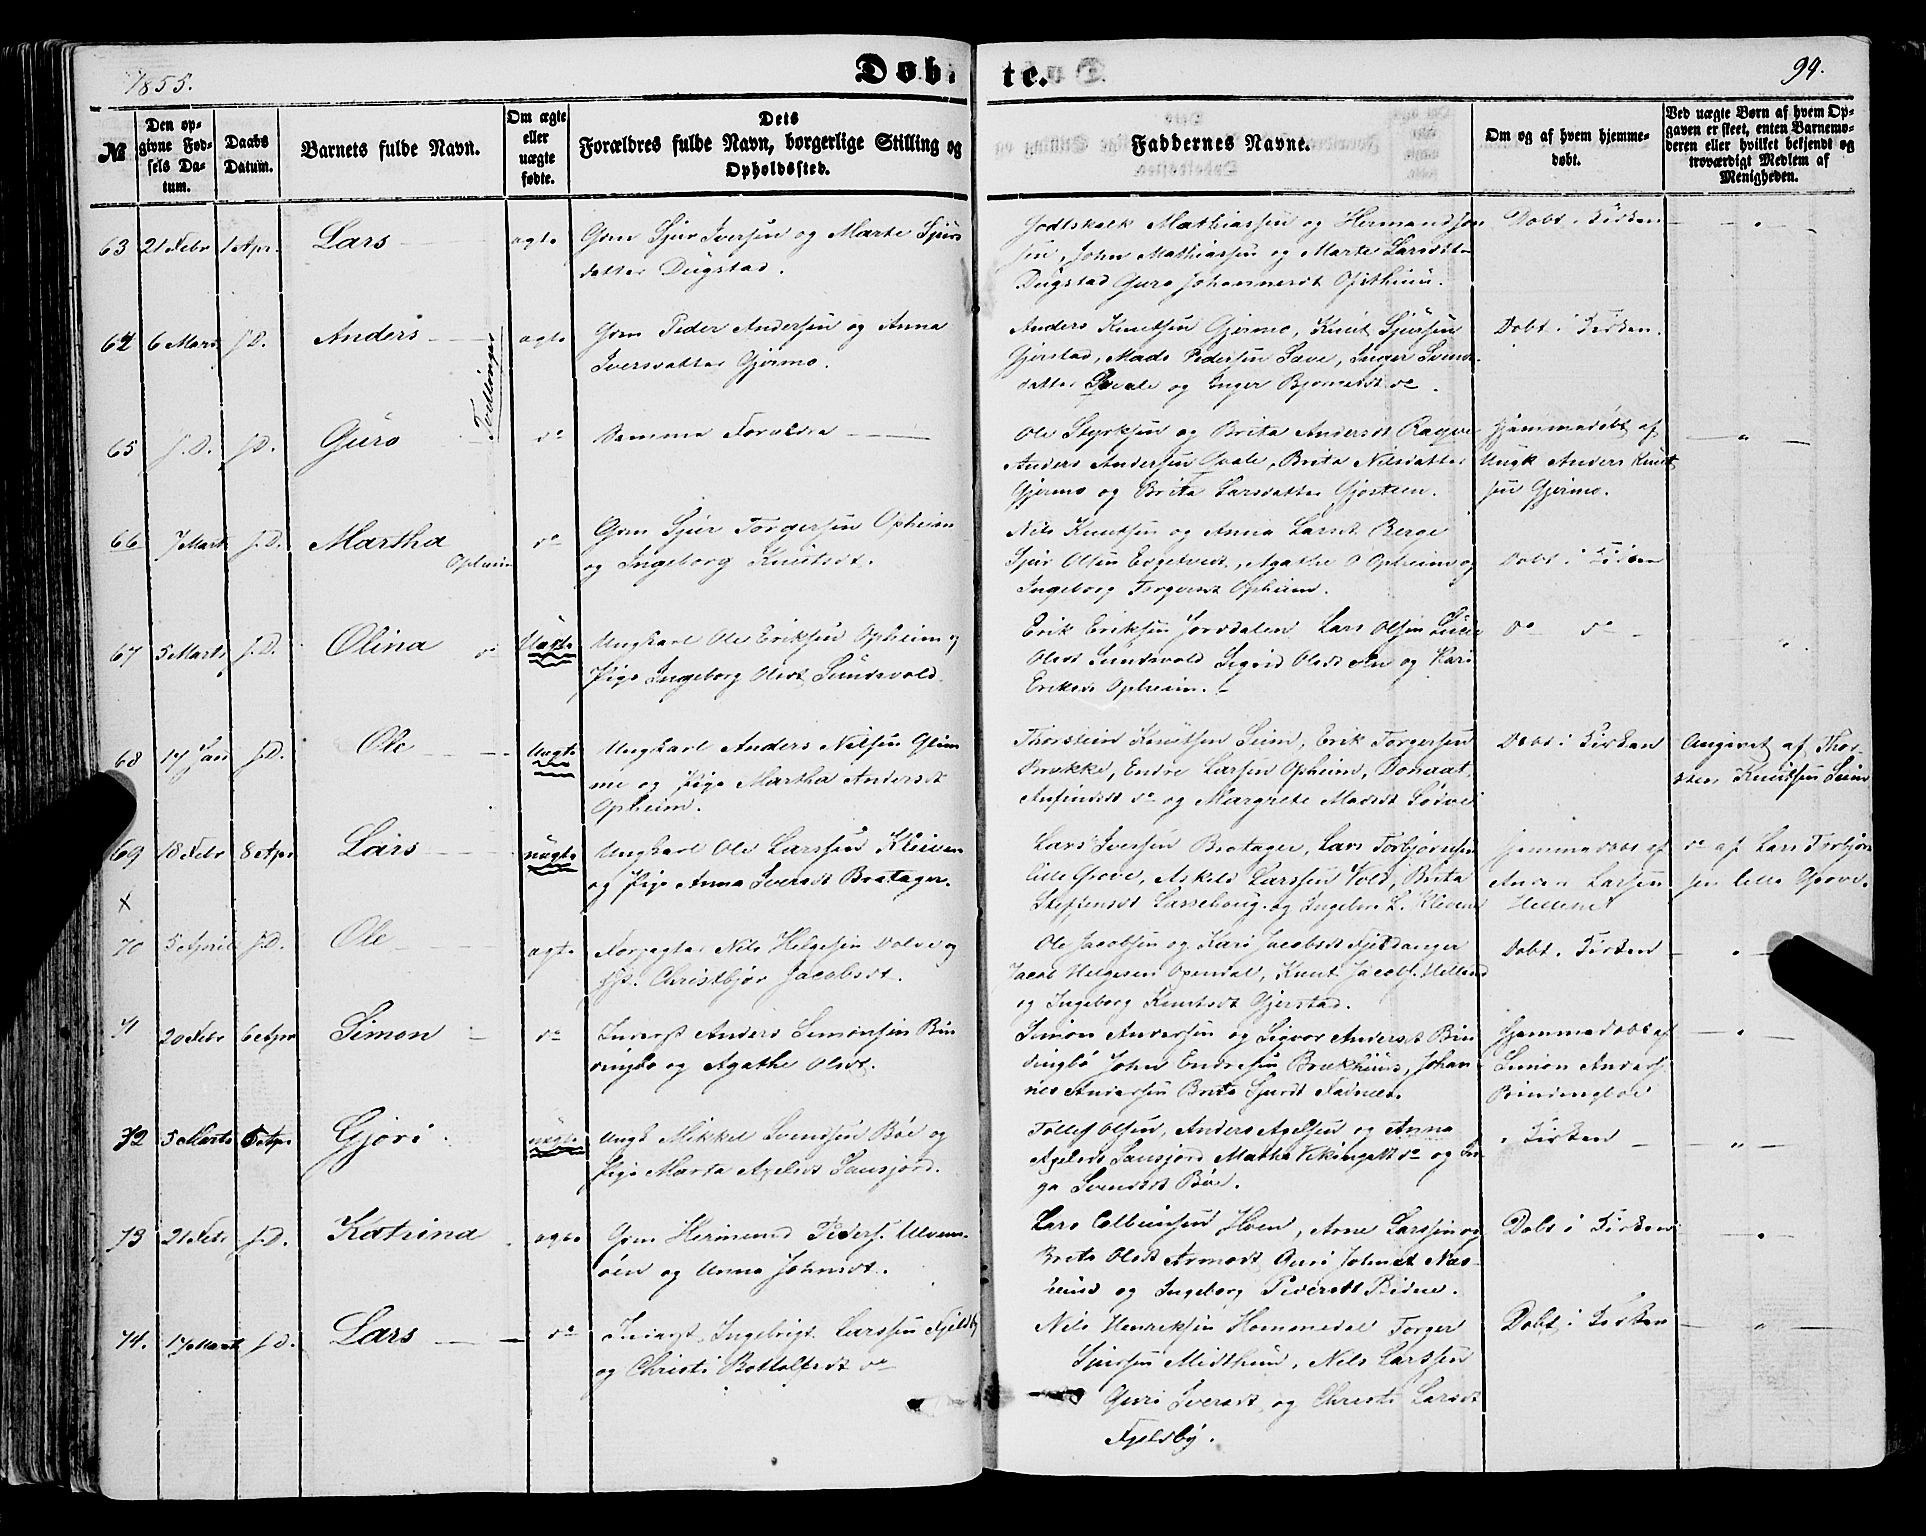 1855.
Døb- te.
99.
№
Den opgivne Fødsels Datum.
Daabs Datum.
Barnets fulde Navn.
Om ægte eller uægte fødte.
Dets Forældres fulde Navn, borgerlige Stilling og Opholdssted.
Faddernes Navne.
Om og af hvem hjemmedøbt.
Ved uægte Børn af hvem Opgaven er skeet, enten Barnemoderen eller hvilket bekjendt og troværdigt Medlem af Menigheden.
63 21 Febr 1 Apr. Lars ægte
Grm Sjur Iversen og Marte Sjurs
datter Dugstad.
Godtskalk Mathiassen og Hermand Jon
sen, John Mathiassen og Marte Larsdtr
Dugstad Guro Johannesdt Opitheim.
Døbt i Kirken
64 6 Marts S.D. Anders ægte
Tvillinger
Grm Peder Andersen og Anna
Iversdatter Gjermo.
Anders Knutsen Gjermo, Knut Sjursen
Gjerstad, Mads Pedersen Sæve, Inger Svends
datter Qvale og Inger Bjørnesdt do.
Døbt i Kirken.
65 S.D. S.D. Guro do
Samme Forældre
Ole Styrksen og Brita Andersdt Rogne
Anders Andersen Qvale, Brita Nilsdatter
Gjermo og Brita Larsdatter Gjøstein.
Hjemmedøbt af
Ungk Anders Knut
sen Gjermo.
66 7 Marts S.D. Martha Opheim do
Grm Sjur Torgersen Opheim
og Ingeborg Knutsdt.
Nils Knutsen og Anna Larsdt Berge
Sjur Olsen Engelsvedt, Agathe O Opheim og
Ingeborg Torgersdt Opheim.
Døbt i Kirken
67 5 Marts S.D. Olina do Uægte
Ungkarl Ole Eriksen Opheim og
Pige Ingeborg Olsdt Sundsvold.
Erik Eriksen Jordalen Lars Olsen
Olsdt Sundsvold Sigrid Olsdt do og Kari
Eriksdt Opheim.
do do
68 17 Jan S.D. Ole Uægte
Ungkarl Anders Nilsen Glim
me og Pige Martha Andersdt
Opheim.
Thorstein Knutsen Seim, Erik Torgersen
Brække, Endre Larsen Opheim,
Anfindsdt do og Margrete Madsdt
Døbt i Kirken
Angivet af Thor-
sten Knudsen Seim
69 18 Febr 8 Apr Lars uægte
Ungkarl Ole Larssen Kleven
og Pige Anna Iversdt Bratager.
Lars Iversen Bratager, Lars Torbjørnsen
Lille Grove, Askild Larssen Vold, Brita
Steffensdt Larsehoug. og Ingebor L. Kleven
Hjemmedøbt af
Anders Larsen
Hellenet
do af Lars Torbjørn
sen Lille Grove.
X
70 5 April S.D. Ole ægte
Forpagter Nils Helgesen Dolve og
Hst. Christbjør Jacobsdt.
Ole Jacobsen og Kari Jacobsdt Fjeldanger
Jacob Helgesen Opendal, Knut Jacobs. Helland
og Ingeborg Knutsdt Gjerstad.
Døbt i Kirken
71 20 Febr 6 Apr Simon do
Inderst Anders Simonsen Bin
dingbø og Agathe Olsdt.
Simon Andersen og Sigvor Andersdt Bin
dingbø John Endresen Brækhus, Johan
nes Andersen Brita Sjursdt
Hjemmedøbt af
Simon Anders
Bindingbøe
72 5 Marts 6 Apr Gjøri uægte
Ungk Mikkel Svendsen Bøe og
Pige Marta Axelsdt Sausjord.
Tollef Olsen, Anders Axelsen og Anna
Axelsdt Sausjord Martha Vikingsdt do og In
ga Svendsdt Bøe.
i Kirken
73 21 Febr S.D. Katrina ægte
Grm Hermund Peders. Ulven-
øen og Anna Johnsdt.
Lars Colbeinsen Hven, Arne Larssen og
Brita Olsdt Armodt Guri Johnsdt Næs-
heim og Ingeborg Pedersdt
Døbt i Kirken
74. 17 Marts S.D. Lars do
Inderst, Ingebrigt Larssen Fjeldby
og Christi Bottolfsdt do
Nils Henriksen Hommedal Torger
Sjursen Midthun, Nils Larssen
Guri Iversdt, og Christi Larsdt
Fjeldby.
Døbt i Kirken